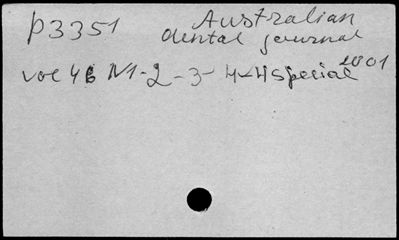 P3351 Australian
dental journal
vol 46 N1-2-3-4-4special 2001